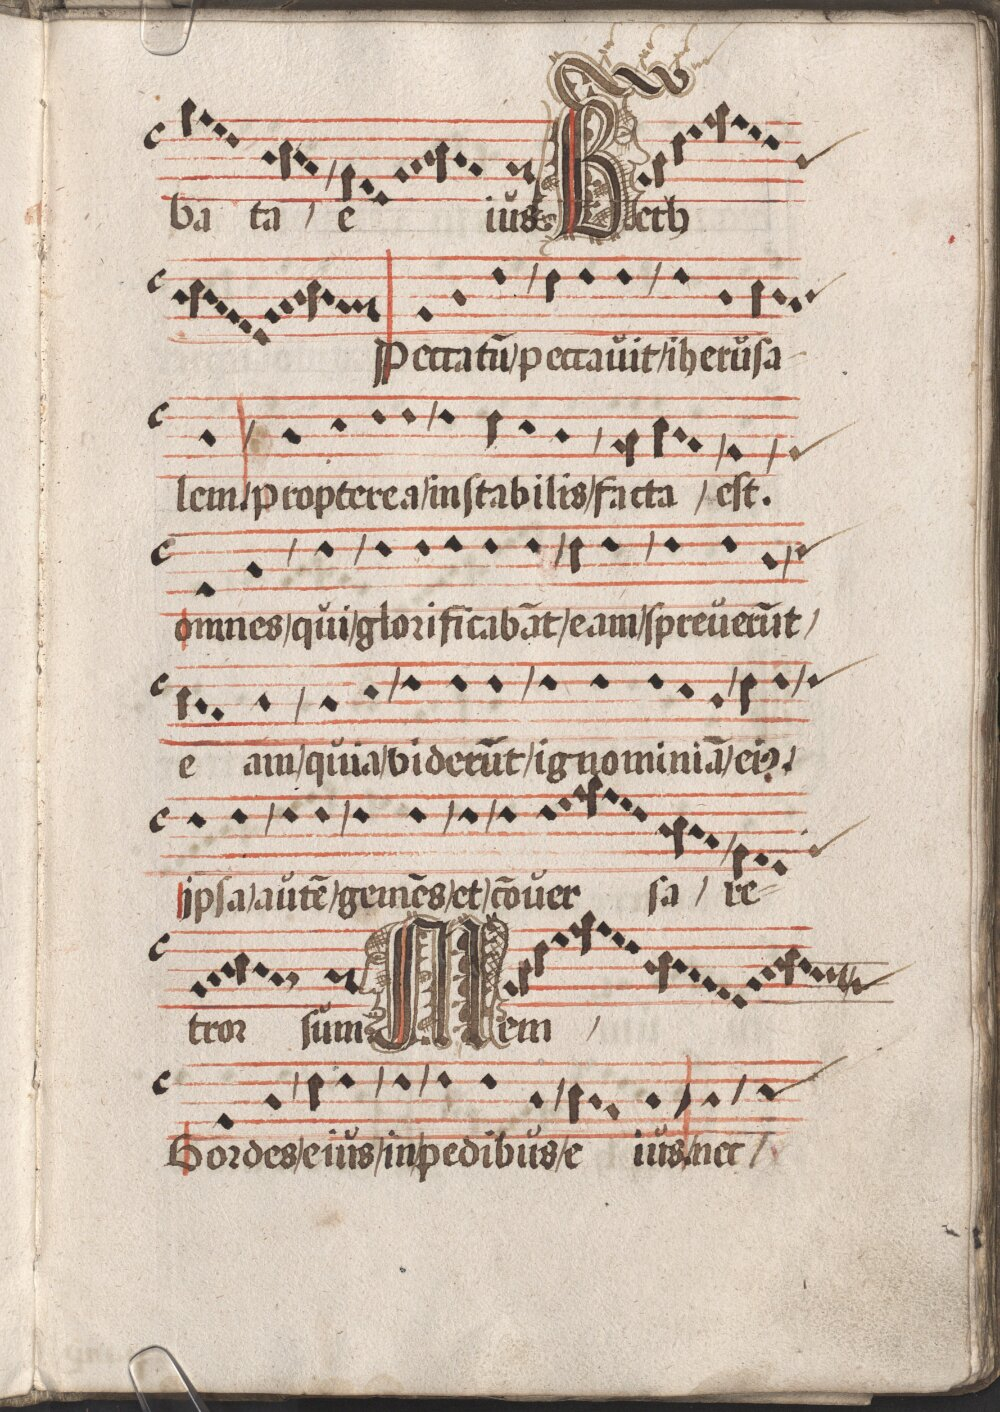 ba ta / e iùs Beth
Peccatū/peccauit/iherùsa-
lem/propterea/instabilis/facta / est.
omnes/qùi/glorificabāt/eam/spreùerūt/
e am/qùia/viderūt/ignominiā/eiꝰ/
ipsa/aùtē/gemēs/et/cōùer sa / re=
tror sùm Mem /
Sordes/eiùs/in/pedibùs/e iùs/nec /